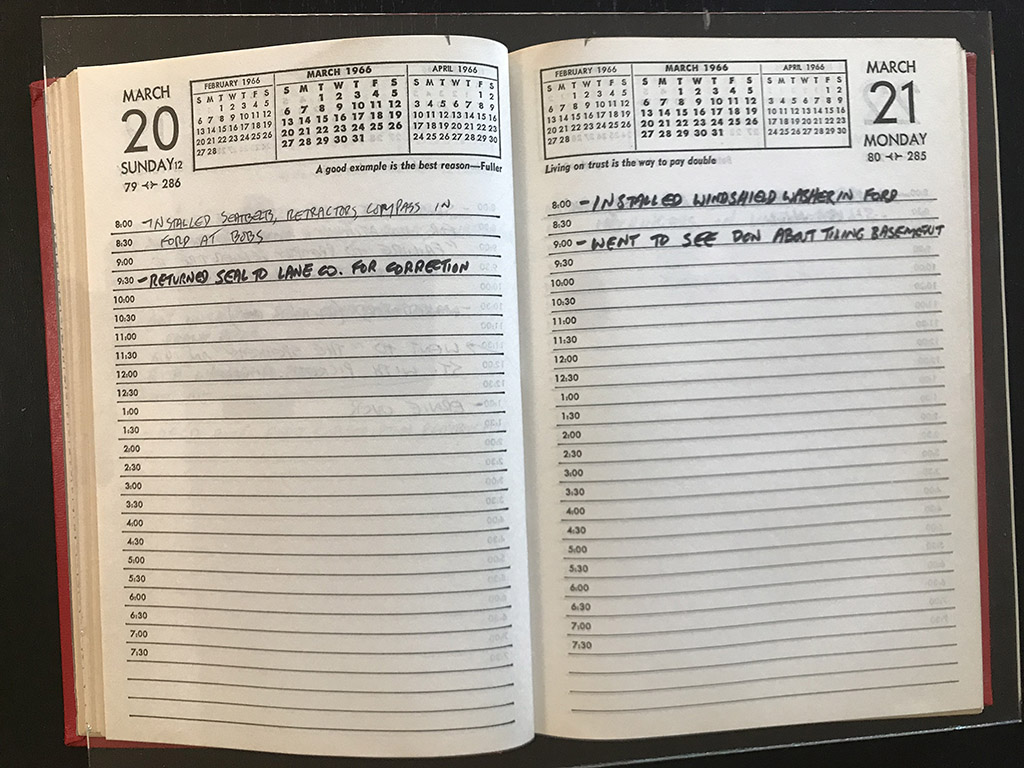 MARCH
20
SUNDAY 12
79 <> 286
FEBRUARY 1966
S M T W T F S
1 2 3 4 5
6 7 8 9 10 11 12
13 14 15 16 17 18 19
20 21 22 23 24 25 26
27 28
MARCH 1966
S M T W T F S
1 2 3 4 5
6 7 8 9 10 11 12
13 14 15 16 17 18 19
20 21 22 23 24 25 26
27 28 29 30 31
APRIL 1966
S M T W T F S
1 2
3 4 5 6 7 8 9
10 11 12 13 14 15 16
17 18 19 20 21 22 23
24 25 26 27 28 29 30
A good example is the best reason—Fuller
8:00 -INSTALLED SEATBELTS, RETRACTORS, COMPASS IN
8:30 FORD AT BOBS
9:00
9:30 -RETURNED SEAL TO LANE CO. FOR CORRECTION
10:00
10:30
11:00
11:30
12:00
12:30
1:00
1:30
2:00
2:30
3:00
3:30
4:00
4:30
5:00
5:30
6:00
6:30
7:00
7:30
FEBRUARY 1966
S M T W T F S
1 2 3 4 5
6 7 8 9 10 11 12
13 14 15 16 17 18 19
20 21 22 23 24 25 26
27 28
MARCH 1966
S M T W T F S
1 2 3 4 5
6 7 8 9 10 11 12
13 14 15 16 17 18 19
20 21 22 23 24 25 26
27 28 29 30 31
APRIL 1966
S M T W T F S
1 2
3 4 5 6 7 8 9
10 11 12 13 14 15 16
17 18 19 20 21 22 23
24 25 26 27 28 29 30
MARCH
21
MONDAY
80 <> 285
Living on trust is the way to pay double
8:00 -INSTALLED WINDSHIELD WASHER IN FORD
8:30
9:00 -WENT TO SEE DON ABOUT TILING BASEMENT
9:30
10:00
10:30
11:00
11:30
12:00
12:30
1:00
1:30
2:00
2:30
3:00
3:30
4:00
4:30
5:00
5:30
6:00
6:30
7:00
7:30